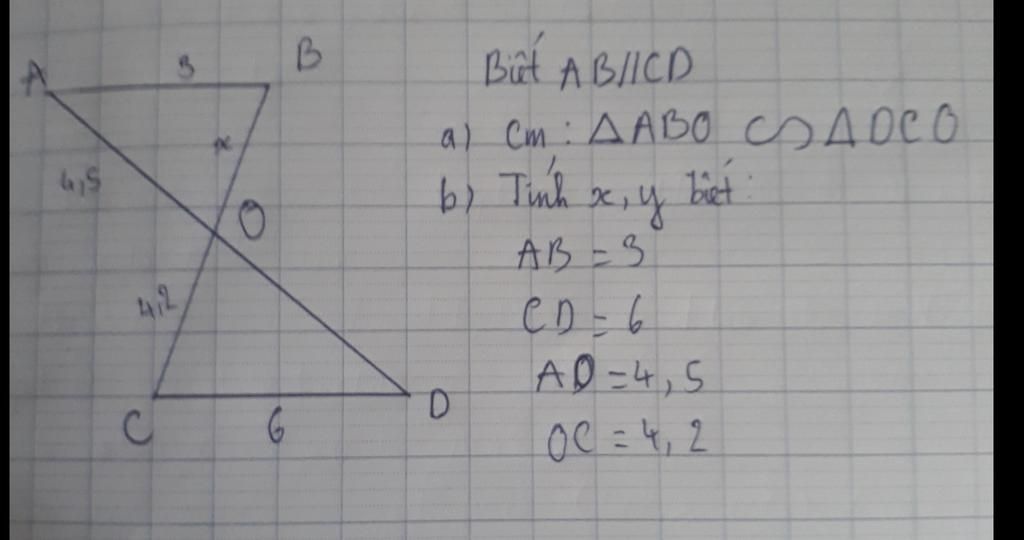 A 3 B
x
4,5
O
4,2
C 6 D
Biết AB//CD
a) Cm : ΔABO ∽ ΔDCO
b) Tính x, y biết :
AB = 3
CD = 6
AO = 4,5
OC = 4,2